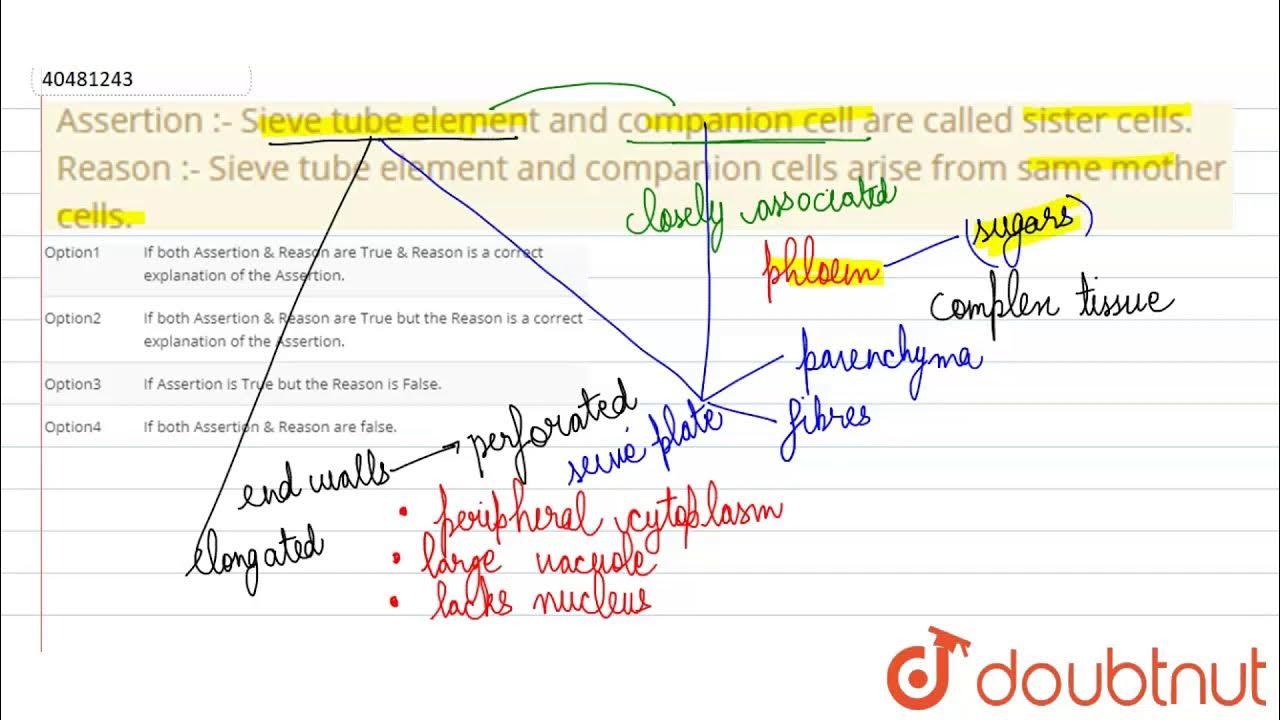 40481243
Assertion :- Sieve tube element and companion cell are called sister cells.
Reason :- Sieve tube element and companion cells arise from same mother
cells.
closely associated
phloem
(sugars)
complex tissue
Option1 If both Assertion & Reason are True & Reason is a correct
explanation of the Assertion.
Option2 If both Assertion & Reason are True but the Reason is a correct
explanation of the Assertion.
Option3 If Assertion is True but the Reason is False.
Option4 If both Assertion & Reason are false.
parenchyma
fibres
end walls
perforated
seive plate
elongated
• peripheral cytoplasm
• large vacuole
• lacks nucleus
doubtnut